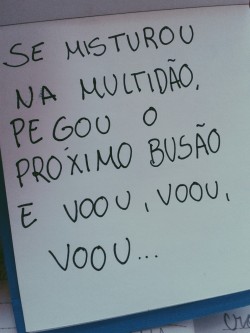 SE MISTUROU
NA MULTIDÃO,
PEGOU O
PRÓXIMO BUSÃO
E VOOU, VOOU,
VOOU...